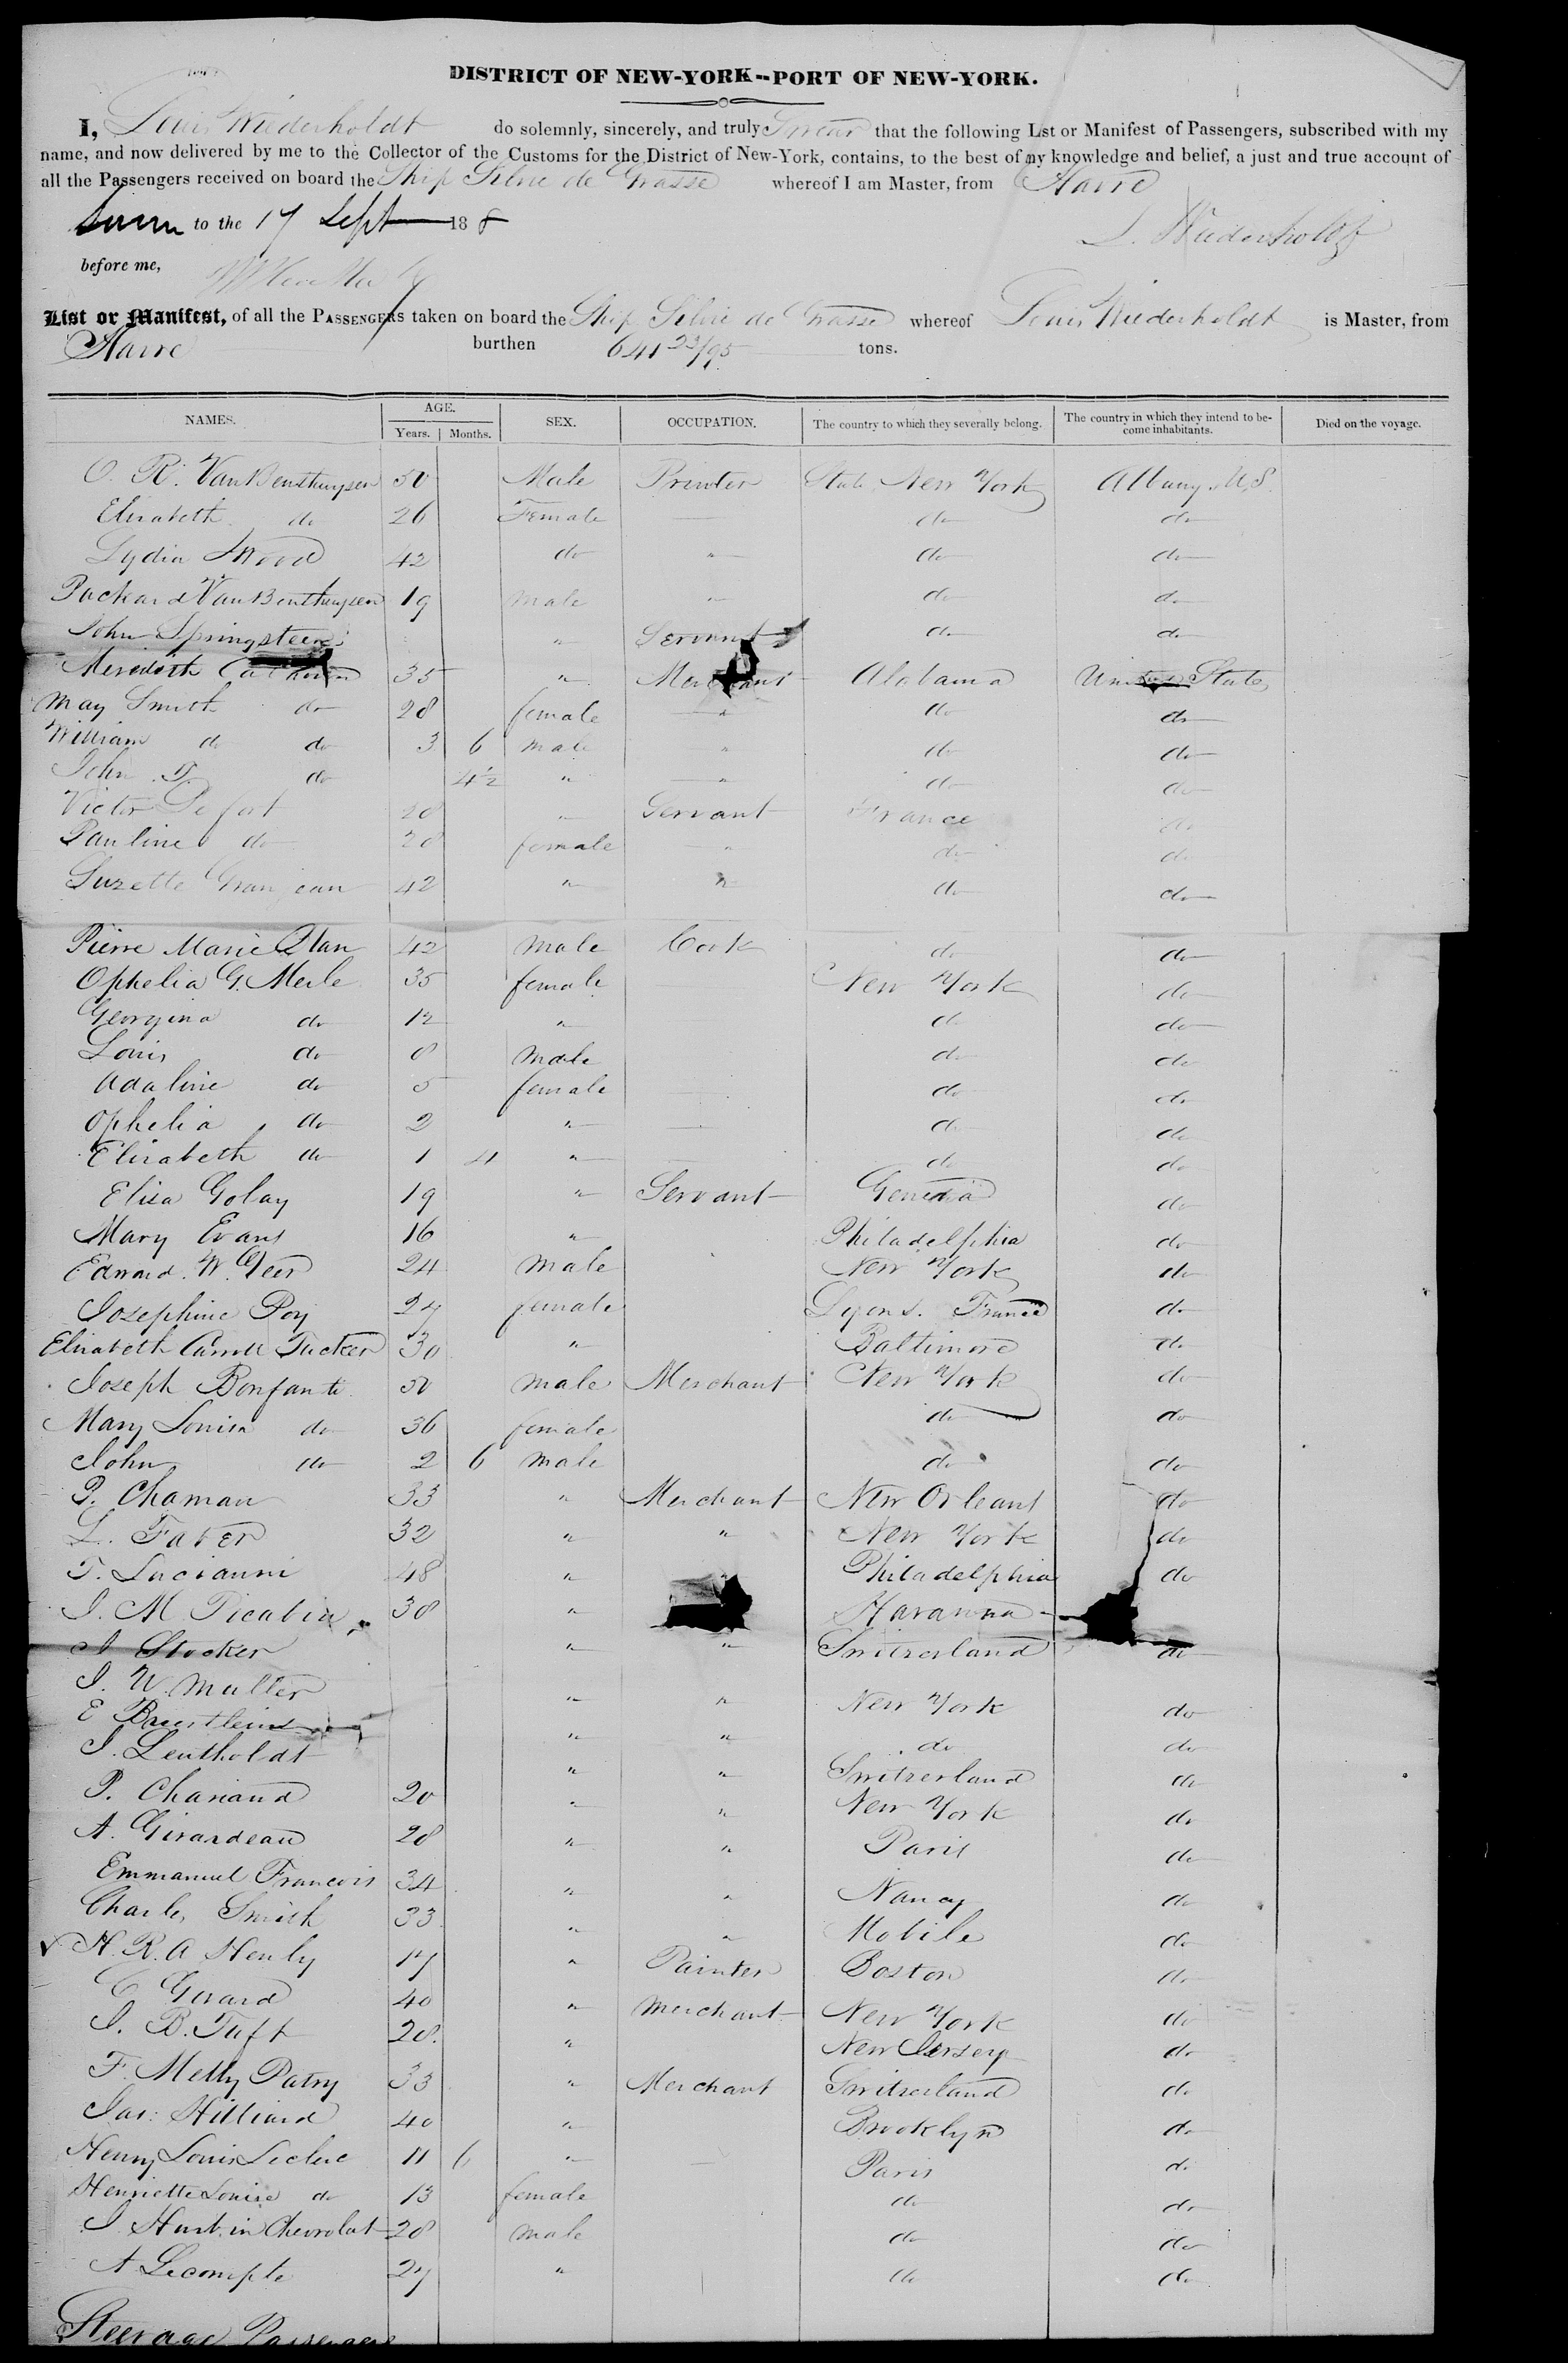 DISTRICT OF NEW-YORK--PORT OF NEW-YORK.
I, Louis Wiederholdt do solemnly, sincerely, and truly Swear that the following List or Manifest of Passengers, subscribed with my
name, and now delivered by me to the Collector of the Customs for the District of New-York, contains, to the best of my knowledge and belief, a just and true account of
all the Passengers received on board the Ship Silvie de Grasse whereof I am Master, from Havre
Sworn to the 17 Sept 18 8
L. Wiederholdt
before me,
List or Manifest, of all the PASSENGERS taken on board the Ship Silvie de Grasse whereof Louis Wiederholdt is Master, from
Havre burthen 641 23/95 tons.
NAMES. AGE. Years. Months. SEX. OCCUPATION. The country to which they severally belong. The country in which they intend to become inhabitants. Died on the voyage.
O. R. Van Benthuysen 50 Male Printer State New York Albany U,S.
Elizabeth do 26 Female do do
Lydia Wood 42 do " do do
Packard Van Benthuysen 19 male " do do
John Springsteen " Servant do do
Meredith 35 " Merchant Alabama United States
May Smith do 28 female " do do
William do do 3 6 male " do do
John do 4½ " " do do
Victor 28 " Servant France do
Pauline do 28 female " do do
Suzette Granjean 42 " " do do
Pierre Marie 42 male Cook do do
Ophelia G. Merle 35 female New York do
Georgina do 12 " do do
Louis do 8 male do do
Adaline do 5 female do do
Ophelia do 2 " do do
Elizabeth do 1 4 " do do
Elisa Golay 19 " Servant Geneva do
Mary Evans 16 " Philadelphia do
Edward W. Geer 24 male New York do
Josephine Roy 27 female Lyons. France do
Elizabeth Carroll Tucker 30 " Baltimore do
Joseph Bonfante 50 male Merchant New York do
Mary Louisa do 36 female do do
John do 2 6 male do do
P. Chaman 33 " Merchant New Orleans do
L. Faber 32 " " New York do
T. Lucianni 48 " Philadelphia do
J. M Picabia 38 " Havanna
J Stocker " " Switzerland do
J. U. Muller " " New York do
E " " do do
J. Leutholdt " " Switzerland do
P. Chariaud 20 " " New York do
A. Girardeau 28 " " Paris do
Emmanuel Francois 34 " " Nancy do
Charles Smith 33 " " Mobile do
H. R. A Henly 17 " Painter Boston do
C Gerard 40 " Merchant New York do
J. B. Tuft 28. " New Jersey do
F. Melly Patry 33 " Merchant Switzerland do
Jas: Hilliard 40 " Brooklyn do
Henry Louis Leclerc 11 6 " Paris do
Henriette Louise do 13 female do do
J. Chevrolat 28 male do do
A Lecompte 27 " do do
Steerage Passengers